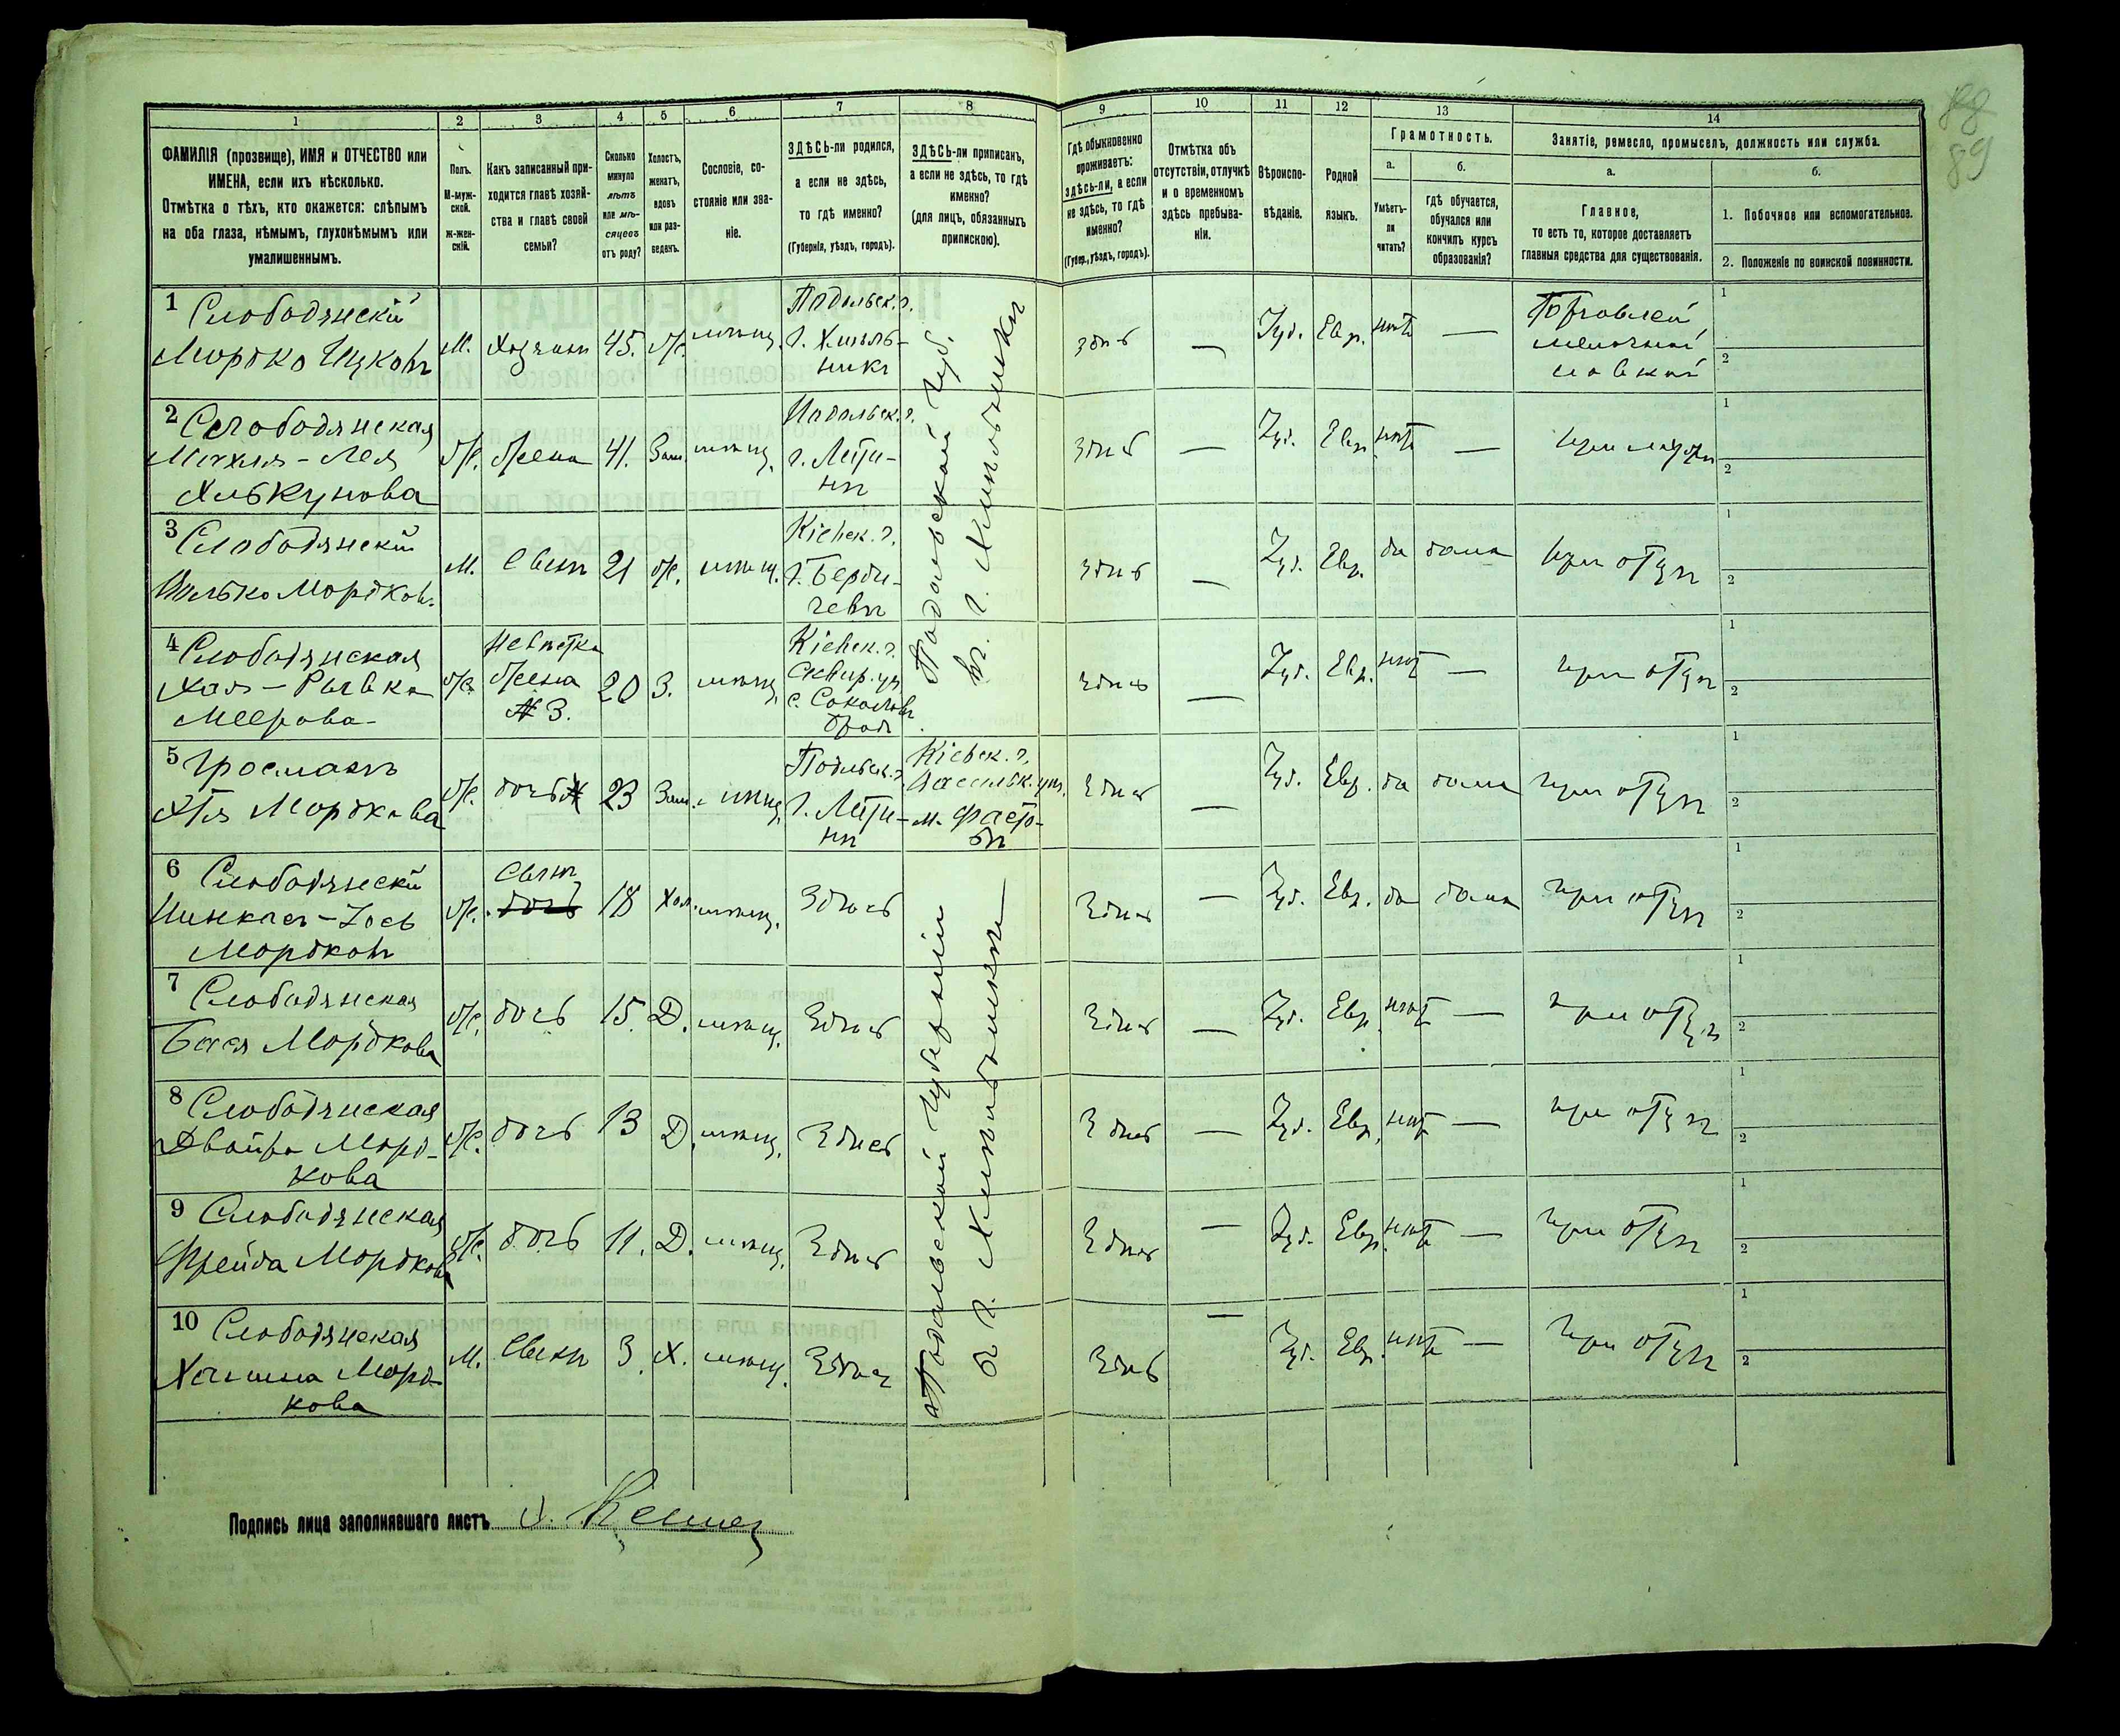 88
89
1
2
3
4
5
6
7
8
9
10
11
12
13
14
ФАМИЛІЯ (прозвище), ИМЯ и ОТЧЕСТВО или
ИМЕНА, если ихъ нѣсколько.
Отмѣтка о тѣхъ, кто окажется: слѣпымъ
на оба глаза, нѣмымъ, глухонѣмымъ или
умалишеннымъ.
Полъ.
М-муж-
ской.
ж-жен-
скій.
Какъ записанный при-
ходится главѣ хозяй-
ства и главѣ своей
семьи?
Сколько
минуло
лѣтъ
или мѣ-
сяцевъ
отъ роду?
Холостъ,
женатъ,
вдовъ
или раз-
веденъ.
Сословіе, со-
стояніе или зва-
ніе.
ЗДѢСЬ-ли родился,
а если не здѣсь,
то гдѣ именно?
(Губернія, уѣздъ, городъ).
ЗДѢСЬ-ли приписанъ,
а если не здѣсь, то гдѣ
именно?
(для лицъ, обязанныхъ
припискою).
Гдѣ обыкновенно
проживаетъ:
здѣсь-ли, а если
не здѣсь, то гдѣ
именно?
(Губер., уѣздъ, городъ).
Отмѣтка объ
отсутствіи, отлучкѣ
и о временномъ
здѣсь пребыва-
ніи.
Вѣроиспо-
вѣданіе.
Родной
языкъ.
Грамотность.
а.
Умѣетъ-
ли
читать?
б.
гдѣ обучается,
обучался или
кончилъ курсъ
образованія?
Занятіе, ремесло, промыселъ, должность или служба.
а.
Главное,
то есть то, которое доставляетъ
главныя средства для существованія.
б.
1. Побочное или вспомогательное.
2. Положеніе по воинской повинности.
1 Слободянскій
Мордко Ицковъ
М. Хозяинъ 45. Ж. мѣщ.
Подольск. г.
г. Хмѣль-
никъ
Подольской Губ.
въ г. Хмѣльникѣ
здѣсь — Іуд. Евр. нѣтъ —
Торговлей
мелочной
лавкой
1
2
2 Слободянская
Лея
Ж. Жена 41. Зам. мѣщ.
Подольск. г.
г. Лети-
нѣ
здѣсь — Іуд. Евр. нѣтъ — при мужѣ
1
2
3 Слободянскій
Волько Мордков.
М. Сынъ 21 Ж. мѣщ.
Кіевск. г.
г. Берди-
чевъ
здѣсь — Іуд. Евр. да дома при отцѣ
1
2
4 Слободянская
Хая-Рывка
Меерова
Ж. Невѣстка
Жена
№ 3.
20 З. мѣщ.
Кіевск. г.
Сквир. уѣ.
с. Соколовъ
бродъ
здѣсь — Іуд. Евр. нѣтъ — при отцѣ
1
2
5 Гросманъ
Мордкова
Ж. дочь 23 Зам. мѣщ.
Подольск. г.
г. Лети-
нѣ
Кіевск. г.
Васильк. уѣ.
м. Фасто-
вѣ
Здѣсь — Іуд. Евр. да дома при отцѣ
1
2
6 Слободянскій
Пинхасъ-Іось
Мордковъ
Ж. Сынъ
дочь
18 Хол. мѣщ. Здѣсь
Подольской Губерніи
въ г. Хмѣльникѣ
Здѣсь — Іуд. Евр. да дома при отцѣ
1
2
7 Слободянская
Бася Мордкова
Ж. дочь 15. Д. мѣщ. Здѣсь
Здѣсь — Іуд. Евр. нѣтъ — при отцѣ
1
2
8 Слободянская
Двойра Морд-
кова
Ж. дочь 13 Д. мѣщ. Здѣсь
Здѣсь — Іуд. Евр. нѣтъ — при отцѣ
1
2
9 Слободянская
Фрейда Мордкова
Ж. дочь 11. Д. мѣщ. Здѣсь
Здѣсь — Іуд. Евр. нѣтъ — при отцѣ
1
2
10 Слободянская
Морд-
кова
М. Сынъ 3 Х. мѣщ. Здѣсь
Здѣсь — Іуд. Евр. нѣтъ — при отцѣ
1
2
Подпись лица заполнявшаго листъ